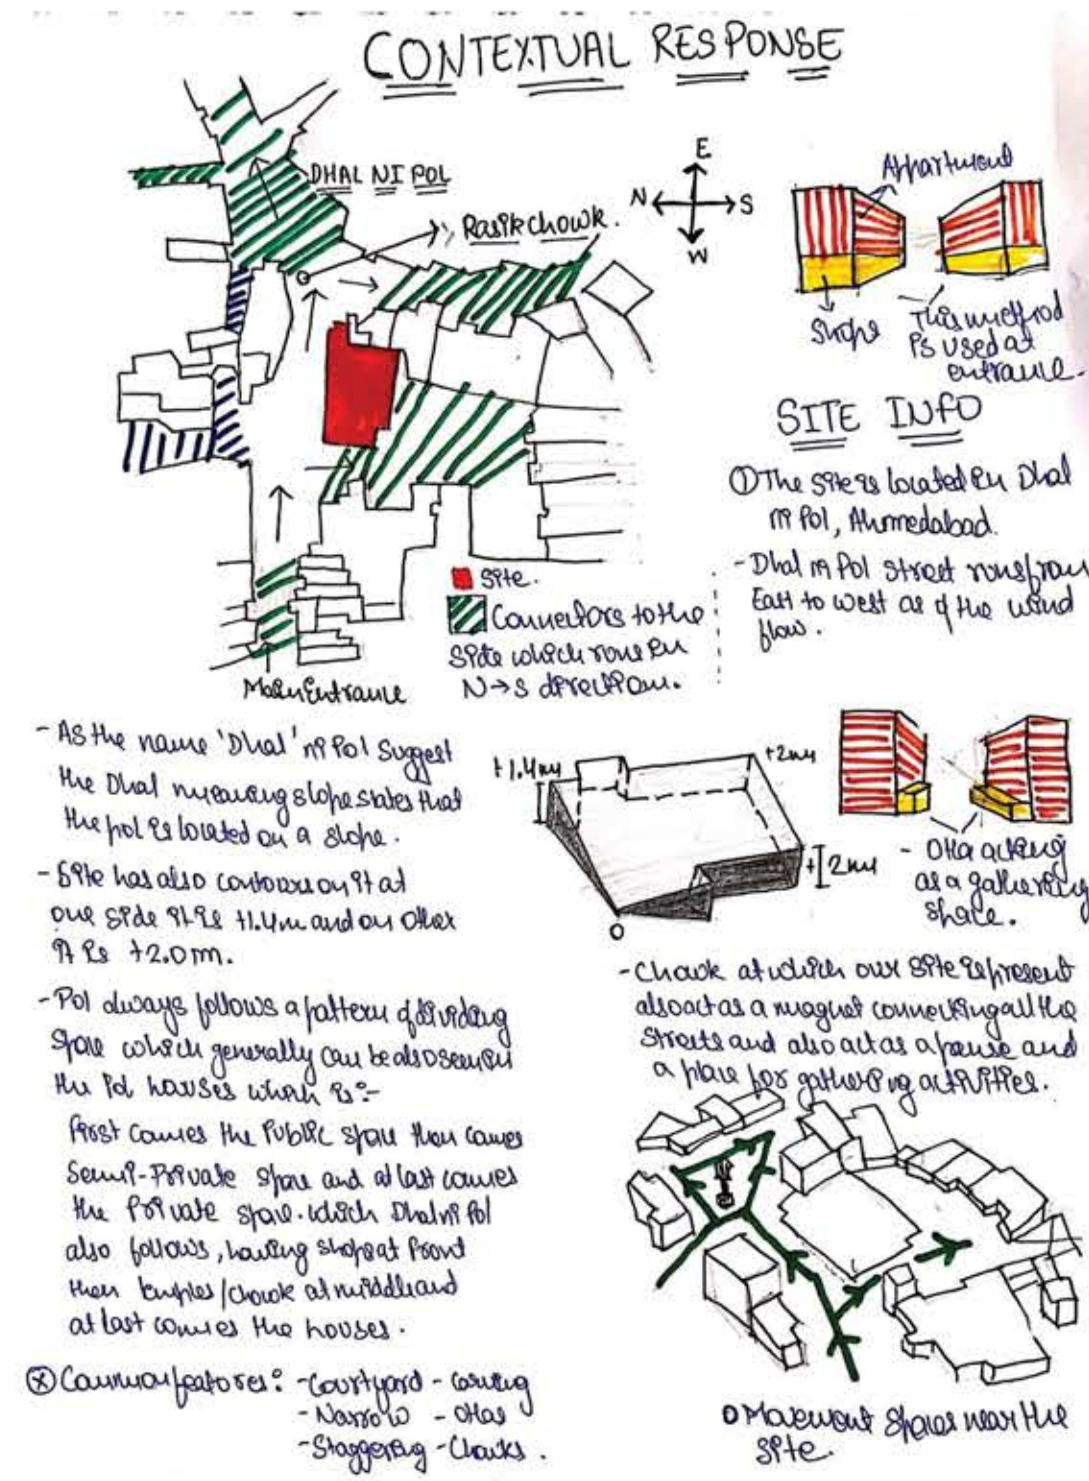 CONTEXTUAL RESPONSE
DHAL NI POL
Rasikchowk.
E
N S
W
Appartment
This method
is used at
entrance.
SITE INFO
① The site is located in Dhal
ni Pol, Ahmedabad.
- Dhal ni Pol street runs from
East to west as of the wind
flow.
Site.
Connectors to the
Site which runs in
N→S direction.
Main Entrance
- As the name 'Dhal' ni Pol suggest
the Dhal meaning slope states that
the pol is located on a slope.
- Site has also contours on it at
one side it is +1.4m and on other
it is +2.0m.
- Pol always follows a pattern of dividing
space which generally can be also seen in
the Pol houses which is:-
First comes the Public space then comes
Semi-Private space and at last comes
the Private space. which Dhal ni Pol
also follows, having shops at front
then temples/chowk at middle and
at last comes the houses.
ⓧ Common features: - Courtyard -
- Narrow - Ottas
- Staggering - Chowks.
+1.4m
+2m
+ 2m
0
- Otta acting
as a gathering
space.
- Chowk at which our site is present
also act as a magnet connecting all the
streets and also act as a pause and
a place for gathering activities.
Movement spaces near the
site.